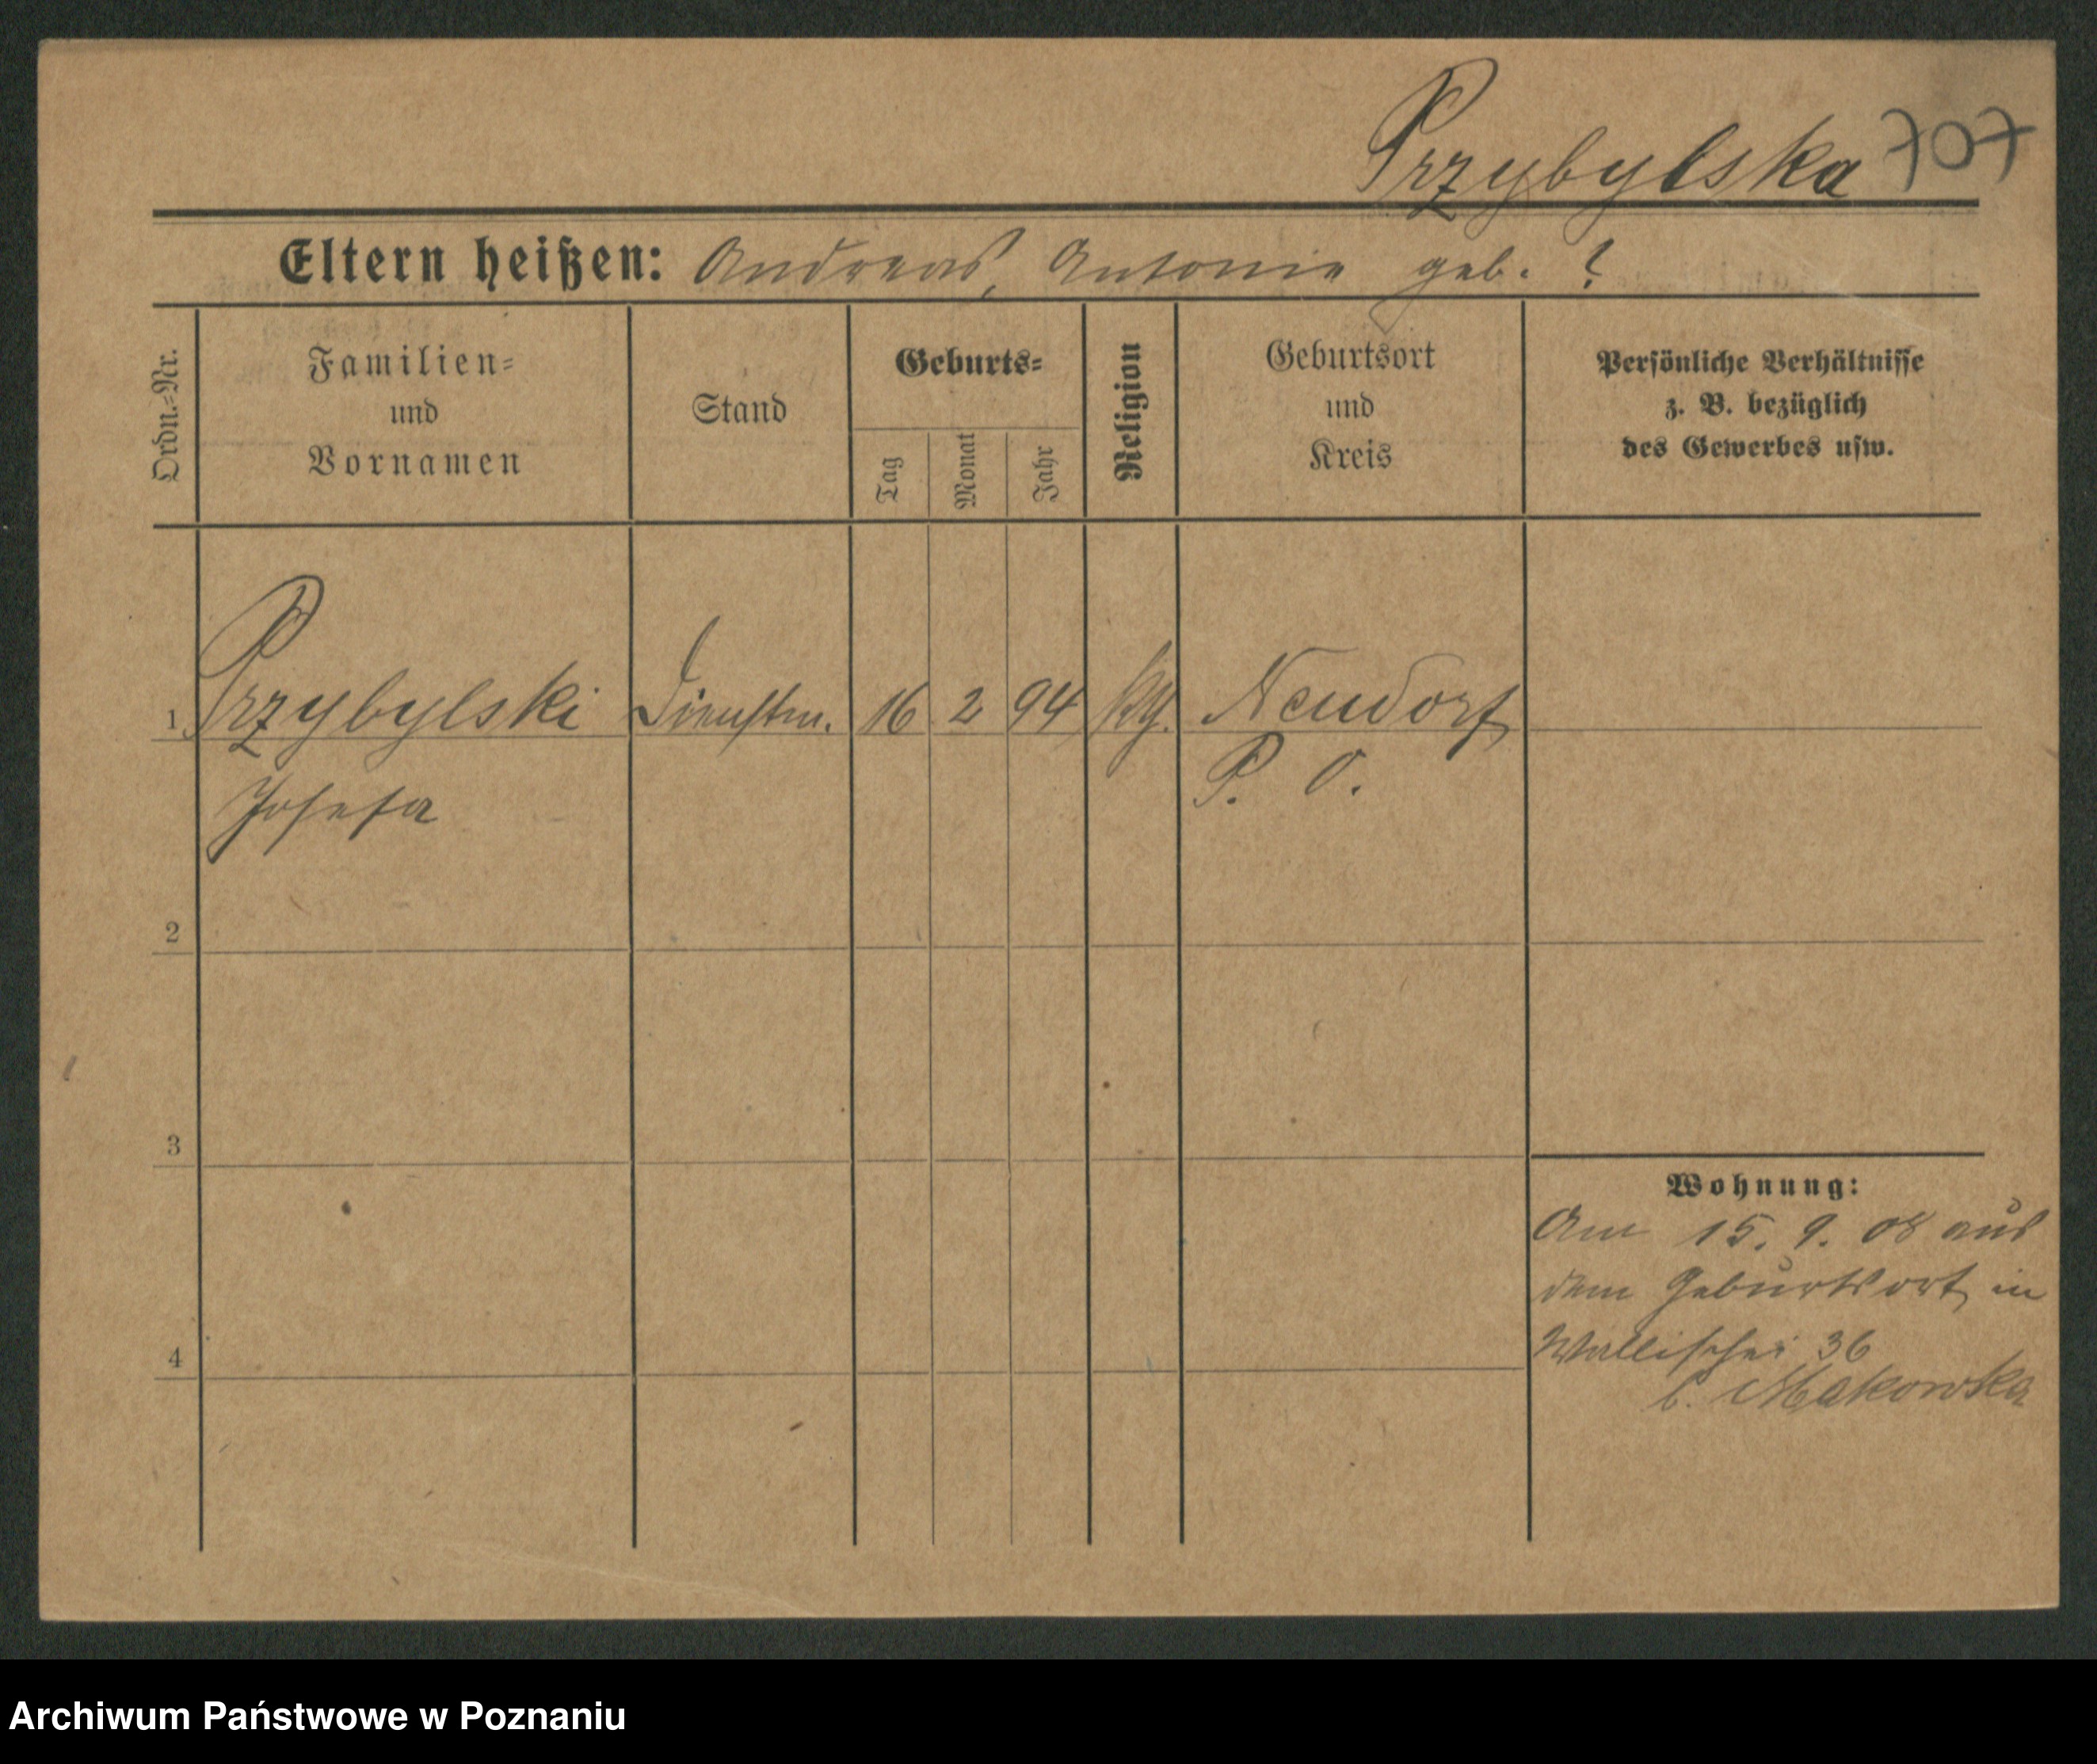 Przybylska 707
Eltern heißen: Andreas, Antonie geb. ?
Ordn.=Nr.
Familien=
und
Vornamen
Stand
Geburts=
Tag
Monat
Jahr
Religion
Geburtsort
und
Kreis
Persönliche Verhältnisse
z. B. bezüglich
des Gewerbes usw.
1 Przybylski Dienstm. 16 2 94 kth. Neudorf
Josefa P. O.
2
3
Wohnung:
Am 15. 9. 08 aus
dem Geburtsort in
4 Wallischei 36
b. Makowska
Archiwum Państwowe w Poznaniu